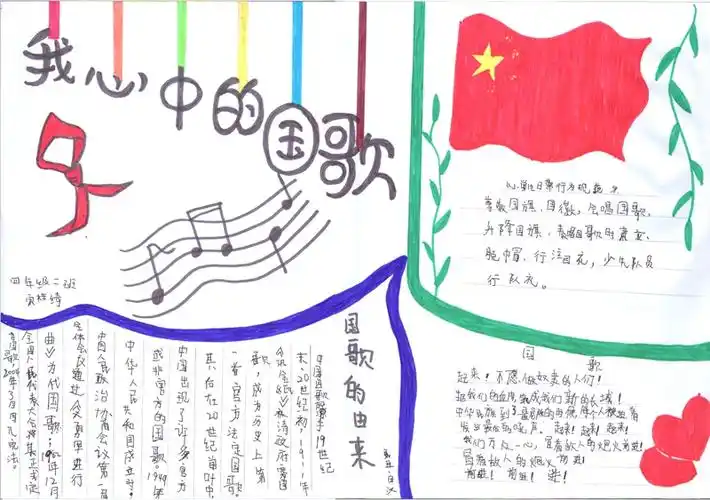 我心中的国歌
四年级二班
小学生日常行为规范
尊敬国旗、国徽,会唱国歌,
升降国旗、奏唱国歌时肃立、
脱帽、行注目礼,少先队员
行队礼。
国歌的由来
中国国歌
末、20世纪初,1911年
被清政府
歌,成为历史上第
一首官方法定国歌
其后在20世纪前叶中
中国出现了许多官方
或非官方的国歌。1949年
中华人民共和国成立时,
中国人民政治协商会议第一届
全体会议通过
曲》为代国歌;1982年12月
全国人民代表大会将其正式定
国歌
起来!不愿做奴隶的人们!
把我们的血肉,筑成我们新的长城!
中华民族到了最危险的时候,每个人被迫着
发出最后的吼声。起来!起来!起来!
我们万众一心,冒着敌人的炮火前进!
冒着敌人的炮火前进!
前进!前进!进!